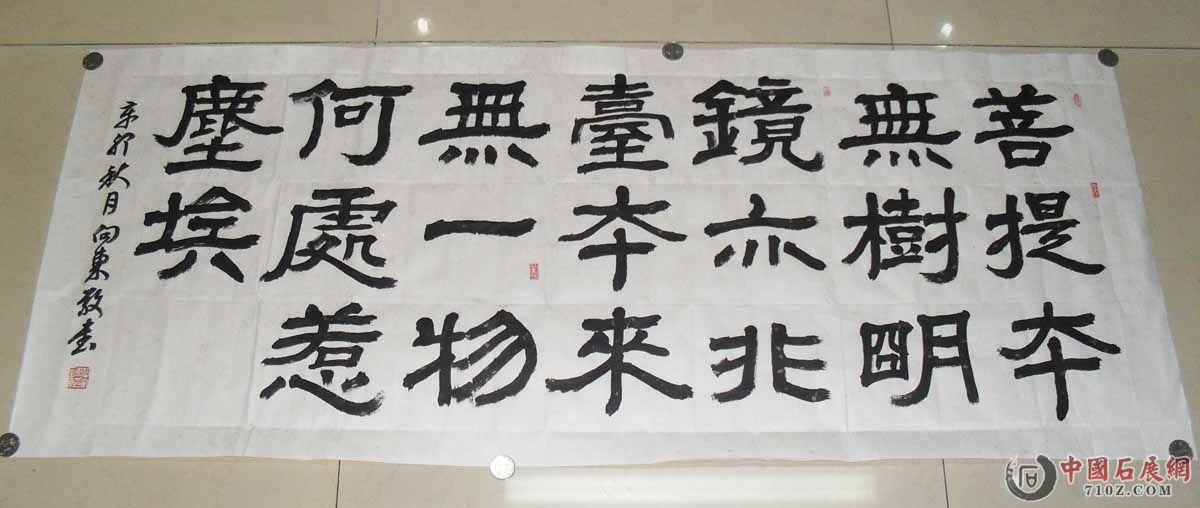 菩提本
無樹明
鏡亦非
臺本來
無一物
何處惹
塵埃
辛卯秋月向東敬書
中國石展網
710Z.COM